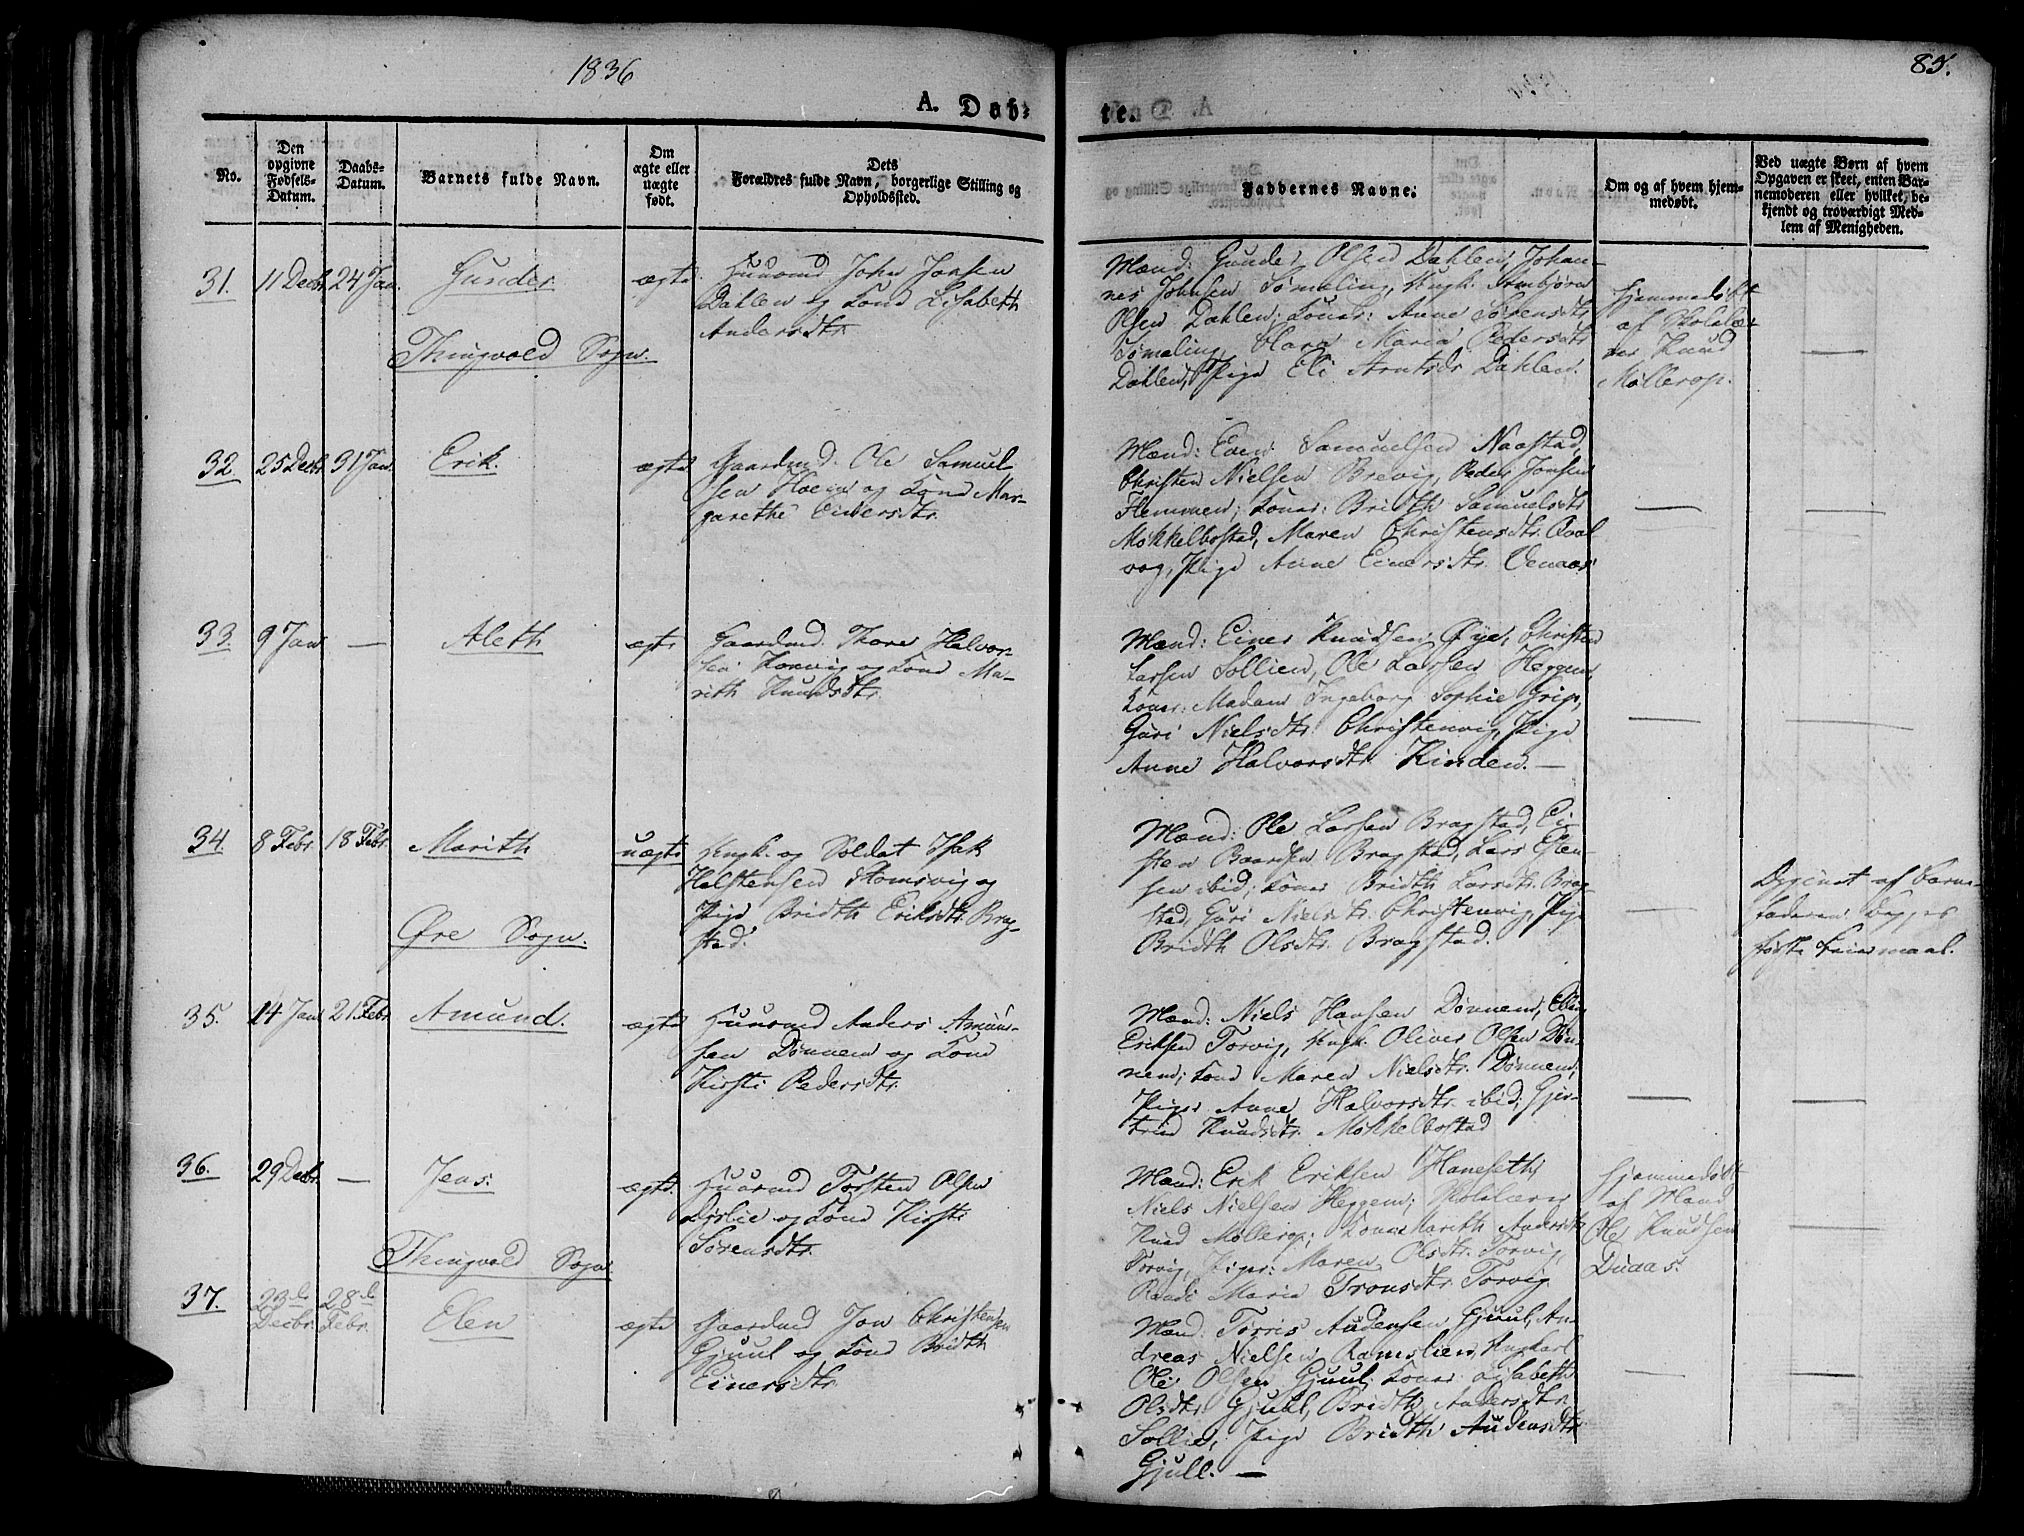 1836
85.
A. Døb-
te.
No.
Den
opgivne
Fødsels-
Datum.
Daabs-
Datum.
Barnets fulde Navn.
Om
ægte eller
uægte
født.
Dets
Forældres fulde Navn, borgerlige Stilling og
Opholdssted.
Faddernes Navne.
Om og af hvem hjem-
medøbt.
Ved uægte Børn af hvem
Opgaven er skeet, enten Bar-
nemoderen eller hvilket, be-
kjendt og troværdigt Med-
lem af Menigheden.
31. 11 Decbr. 24 Jan. Gunder ægte Huusmd John Jonsen
Dahlen og Kone Lisabeth
Andersdtr.
Thingvold Sogn.
Mænd: Gunder Olsen Dahlen, Johan-
nes Johnsen Sømeling, Ungk. Arnbjørn
Olsen Dahlen; Koner: Anne Sørensdtr
Sømeling, Maria Pedersdtr
Dahlen, Pige Eli Arntsdr Dahlen.
Hjemmedøbt
af Skolelæ-
rer Knud
Møllerop.
32. 25 Decbr. 31 Jan. Erik. ægte Gaardmd. Ole Samuel-
sen Hoem og Kone Mar-
garethe Einersdtr.
Mænd: Even Samuelsen Naastad,
Christen Nielsen Brevig, Peder Jonsen
Flemmen; Koner: Bridth Samuelsdtr
Møkkelbostad, Maren Christensdtr. Qval-
vog, Pige Anne Einersdtr. Venaas
33. 9 Jan. — Aleth ægte Gaardmd. Thore Halvor-
sen Korsvig og Kone Ma-
rith Knudsdtr.
Mænd: Einer Knudsen Øye, Christen
Larsen Sollien, Ole Larsen Heggem,
Koner: Madam Ingeborg Sophie Grip,
Guri Nielsdtr. Christenvig, Pige
Anne Halvorsdtr. Kinden. —
34. 8 Febr. 18 Febr. Marith uægte Ungk. og Soldat Isak
Halstensen Stomsvig og
Pige Bridth Eriksdtr. Brag-
stad.
Øre Sogn.
Mænd: Ole Larsen Bragstad, Ei-
sten Baardsen Bragstad, Lars Esten-
sen ibid; Koner Bridth Larsdtr. Brag-
stad, Guri Nielsdtr. Christenvig, Pige
Bridth Olsdtr. Bragstad.
af Barne-
faderen. Begges
første Leiermaal.
35. 14 Jan. 21 Febr. Amund. ægte Huusmd Anders Amund-
sen Dønnem og Kone
Kirsti Pedersdtr.
Mænd: Niels Hansen Dønnem,
Eriksen Torvig, Ungk. Oliver Olsen Døn-
nem; Kone Maren Nielsdtr. Dønnem,
Piger Anne Halvorsdtr. ibid, Gjer-
trud Knudsdtr. Møkkelbostad
36. 29 Decbr. — Jens. ægte. Huusmd Torsten Olsen
Oslie og Kone Kirsti
Sørensdtr.
Thingvold Sogn.
Mænd: Erik Eriksen Hanseth,
Niels Nielsen Heggem; Skolelærer
Knud Møllerop; Kone Marith Andersdtr
Torvig, Piger: Maren Olsdtr. Torvig,
Randi Maria Tronsdtr. Torvig
Hjemmedøbt
af Mand
Ole Knudsen
Duaas.
37. 23de
Decbr. 28de
Febr. Elen ægte Gaardmd Jon Christensen
Gjuul og Kone Bridth
Einersdtr.
Mænd: Torris Audensen Gjuul, An-
dreas Nielsen Ramslien, Ungkarl
Ole Olsen Gjuul, Koner Lisabeth
Olsdtr Gjuul, Bridth Andersdtr
Sollie, Pige Bridth Audensdtr
Gjull. —